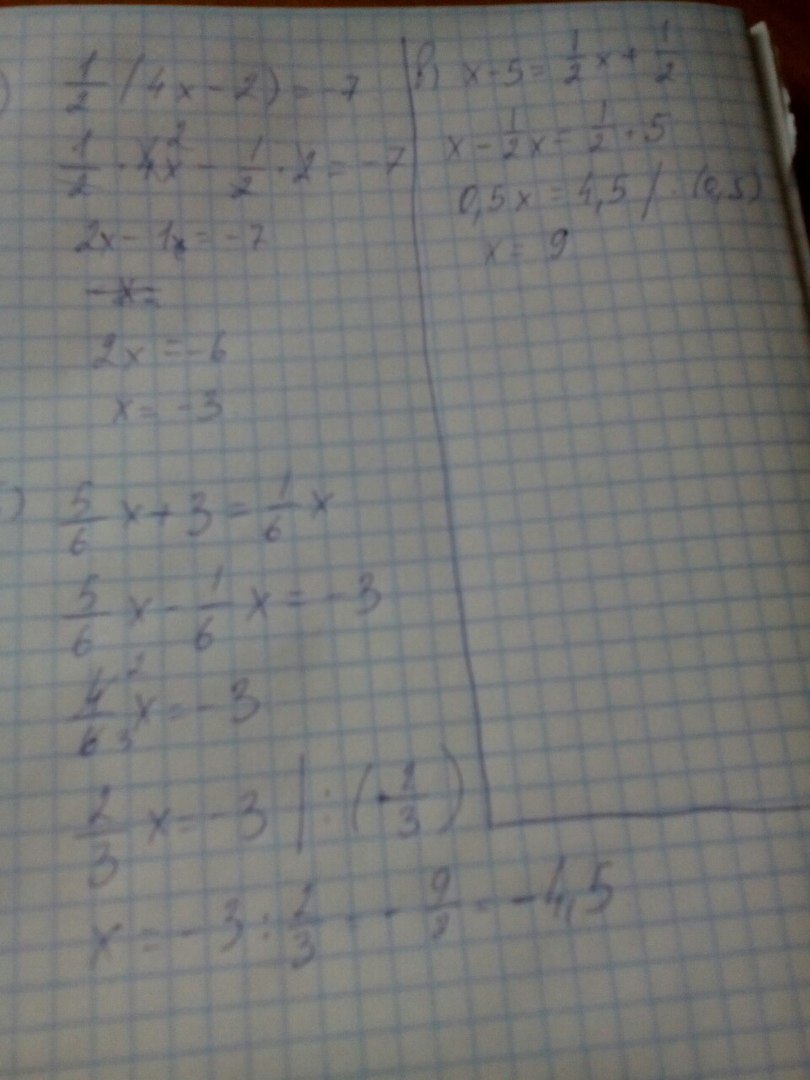 ) 1/2 (4x - 2) = -7
1/2 · 4x² - 1/2 · 2 = -7
2x - 1 = -7
-x=
2x = -6
x = -3
) 5/6 x + 3 = 1/6 x
5/6 x - 1/6 x = -3
4²/6₃ x = -3
2/3 x = -3 | : (2/3)
x = -3 : 2/3 = -9/2 = -4,5
в) x - 5 = 1/2 x + 1/2
x - 1/2 x = 1/2 · 5
0,5x = 4,5 / : (0,5)
x = 9